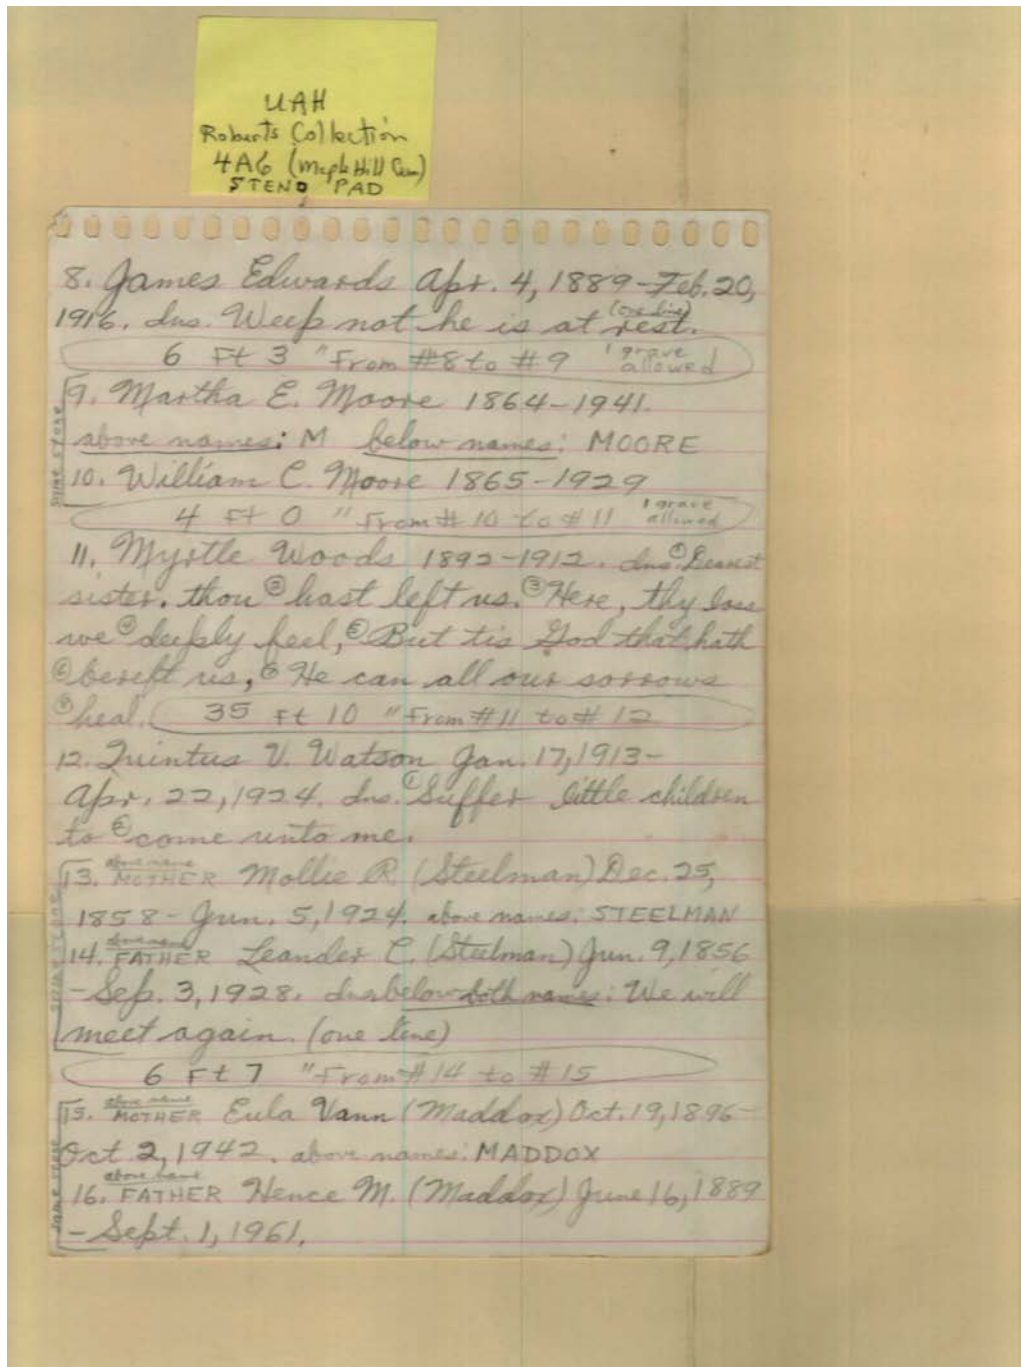 UAH
Roberts Collection
4A6 (Maple Hill Cem)
STENO PAD
8. James Edwards Apr. 4, 1889-Feb. 20,
1916. Ins. Weep not he is at rest. (one line)
6 Ft 3 " From #8 to #9 1 grave allowed
9. Martha E. Moore 1864-1941.
above names: M below names: MOORE
same stone
10. William C. Moore 1865-1929
4 Ft 0 " From #10 to #11 1 grave allowed
11. Myrtle Woods 1892-1912. Ins. ① Dearest
sister, thou ② hast left us. ③ Here, thy loss
we ④ deeply feel, ⑤ But tis God that hath
⑥ bereft us, He can all our sorrows
heal. 35 Ft 10 " From #11 to #12
12. Quintus V. Watson Jan. 17, 1913-
Apr. 22, 1924. Ins. ① Suffer little children
to ② come unto me.
13. above name MOTHER Mollie R. (Steelman) Dec. 25,
1858-Jun. 5, 1924. above names: STEELMAN
same stone
14. above name FATHER Leander C. (Steelman) Jun. 9, 1856
-Sep. 3, 1928. Ins. below both names: We will
meet again. (one line)
6 Ft 7 " From #14 to #15
15. above name MOTHER Eula Vann (Maddox) Oct. 19, 1896-
Oct 2, 1942. above names: MADDOX
same stone
16. above name FATHER Hence M. (Maddox) June 16, 1889
-Sept. 1, 1961.